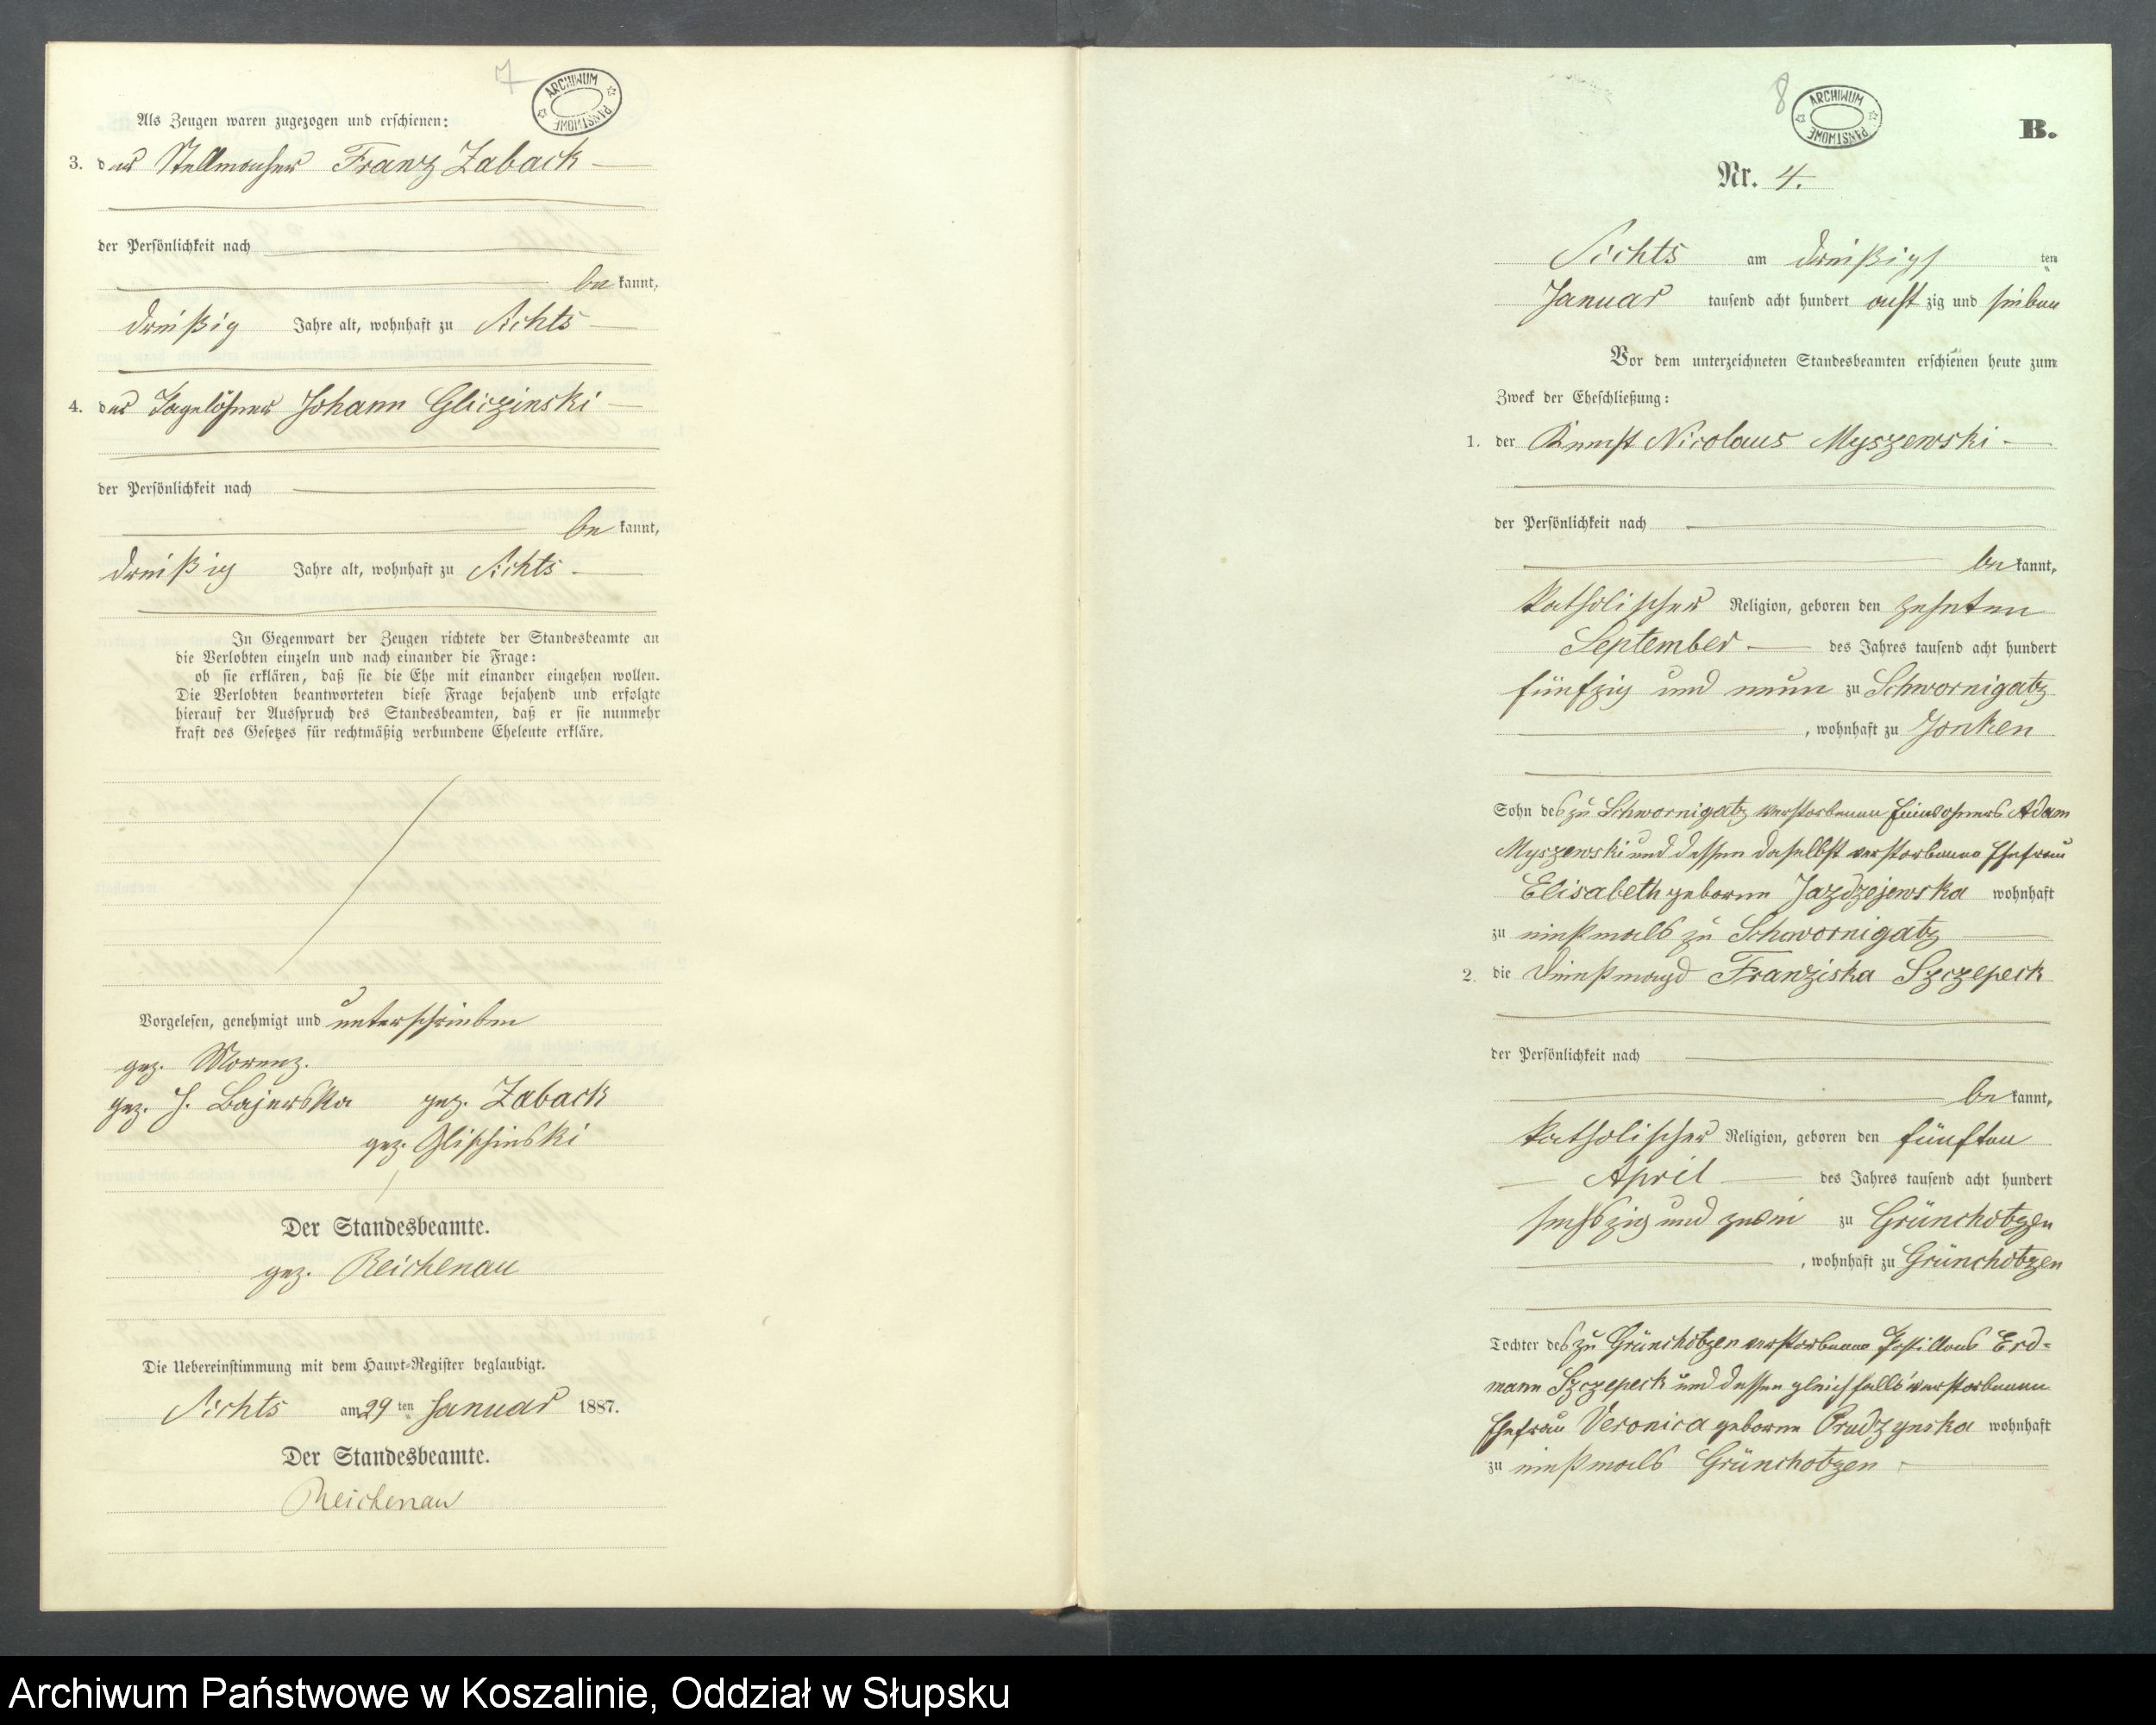 7
ARCHIWUM PAŃSTWOWE
Als Zeugen waren zugezogen und erschienen:
3. der Stellmacher Franz Zaback
der Persönlichkeit nach
be kannt,
dreißig Jahre alt, wohnhaft zu Lichts
4. der Tagelöhner Johann Gliczinski
der Persönlichkeit nach
be kannt,
dreißig Jahre alt, wohnhaft zu Lichts
In Gegenwart der Zeugen richtete der Standesbeamte an
die Verlobten einzeln und nach einander die Frage:
ob sie erklären, daß sie die Ehe mit einander eingehen wollen.
Die Verlobten beantworteten diese Frage bejahend und erfolgte
hierauf der Ausspruch des Standesbeamten, daß er sie nunmehr
kraft des Gesetzes für rechtmäßig verbundene Eheleute erkläre.
Vorgelesen, genehmigt und unterschrieben
gez.
gez. J. Bajewska gez. Zaback
gez. Glischinski
Der Standesbeamte.
gez. Reichenau
Die Uebereinstimmung mit dem Haupt-Register beglaubigt.
Lichts am 29 ten Januar 1887.
Der Standesbeamte.
Reichenau
8
ARCHIWUM PAŃSTWOWE
B.
Nr. 4.
Lichts am dreißigs ten
Januar tausend acht hundert acht zig und sieben
Vor dem unterzeichneten Standesbeamten erschienen heute zum
Zweck der Eheschließung:
1. der Knecht Nicolaus Myszewski
der Persönlichkeit nach
be kannt,
katholischer Religion, geboren den zehnten
September des Jahres tausend acht hundert
fünfzig und neun zu Schwornigatz
, wohnhaft zu Jonken
Sohn des zu Schwornigatz verstorbenen Einwohners Adam
Myszewski und dessen daselbst verstorbenen Ehefrau
Elisabeth geborne Jazdzejewska wohnhaft
zu einstmals zu Schwornigatz
2. die Dienstmagd Franziska Szczepeck
der Persönlichkeit nach
be kannt,
katholischer Religion, geboren den fünften
April des Jahres tausend acht hundert
sechszig und zwei zu Grünchotzen
, wohnhaft zu Grünchotzen
Tochter des zu Grünchotzen verstorbenen Postillons Erd-
mann Szczepeck und dessen gleichfalls verstorbenen
Ehefrau Veronica geborne Prudzynska wohnhaft
zu einstmals Grünchotzen
Archiwum Państwowe w Koszalinie, Oddział w Słupsku